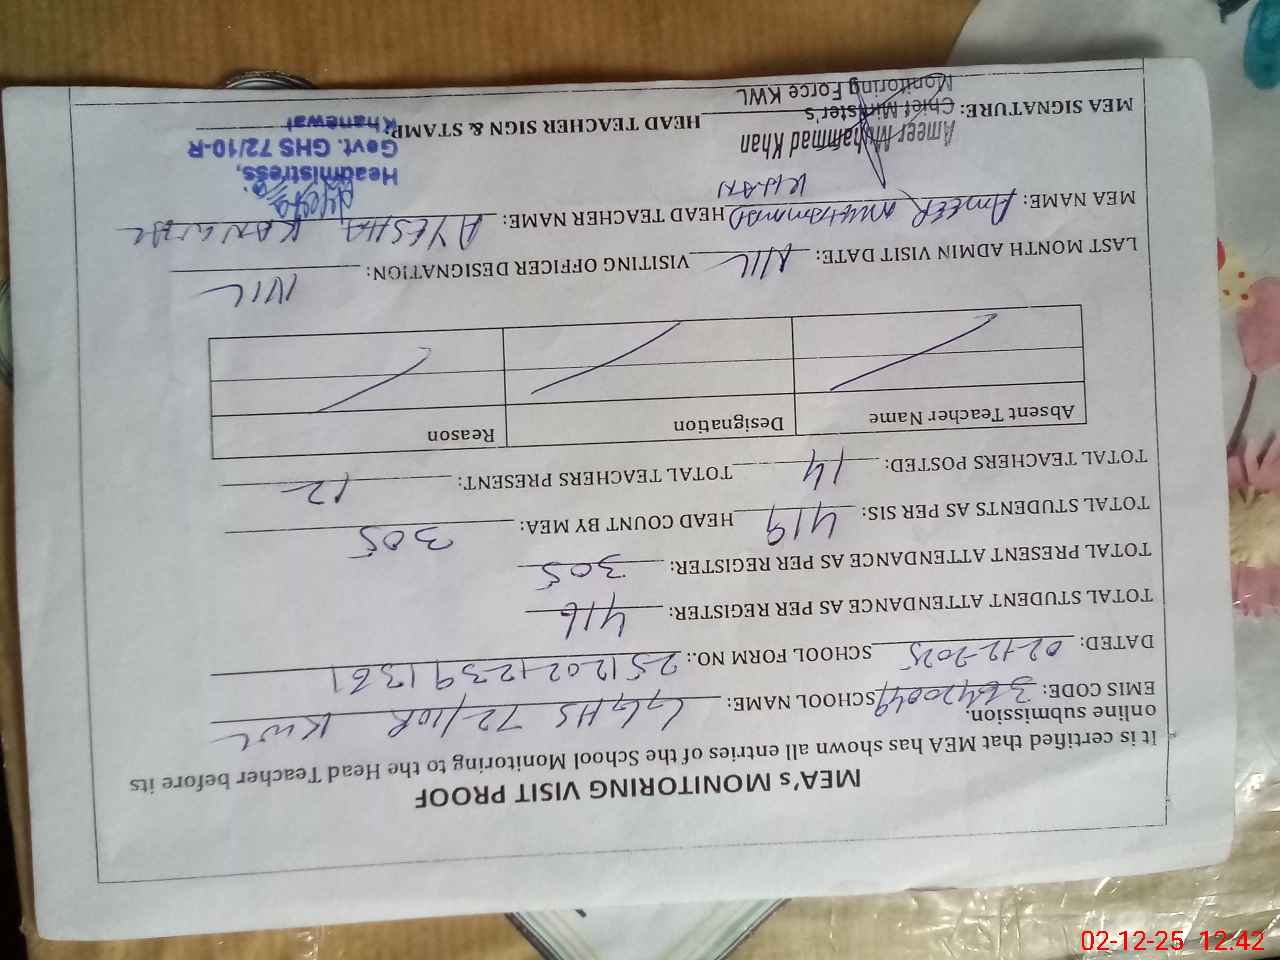 MEA's MONITORING VISIT PROOF
It is certified that MEA has shown all entries of the School Monitoring to the Head Teacher before its
online submission.
EMIS CODE: SCHOOL NAME: GGHS 72/10R KWL
DATED: 02-12-2025 SCHOOL FORM NO.: 25120212391361
TOTAL STUDENT ATTENDANCE AS PER REGISTER: 416
TOTAL PRESENT ATTENDANCE AS PER REGISTER: 305
TOTAL STUDENTS AS PER SIS: 419 HEAD COUNT BY MEA: 305
TOTAL TEACHERS POSTED: 14 TOTAL TEACHERS PRESENT: 12
Absent Teacher Name Designation Reason
LAST MONTH ADMIN VISIT DATE: NIL VISITING OFFICER DESIGNATION: NIL
MEA NAME: AMEER MUHAMMAD KHAN HEAD TEACHER NAME: AYESHA
MEA SIGNATURE: HEAD TEACHER SIGN & STAMP:
Ameer Muhammad Khan
Chief Minister's
Monitoring Force KWL
Headmistress,
Govt. GHS 72/10-R
Khanewal
02-12-25 12:42